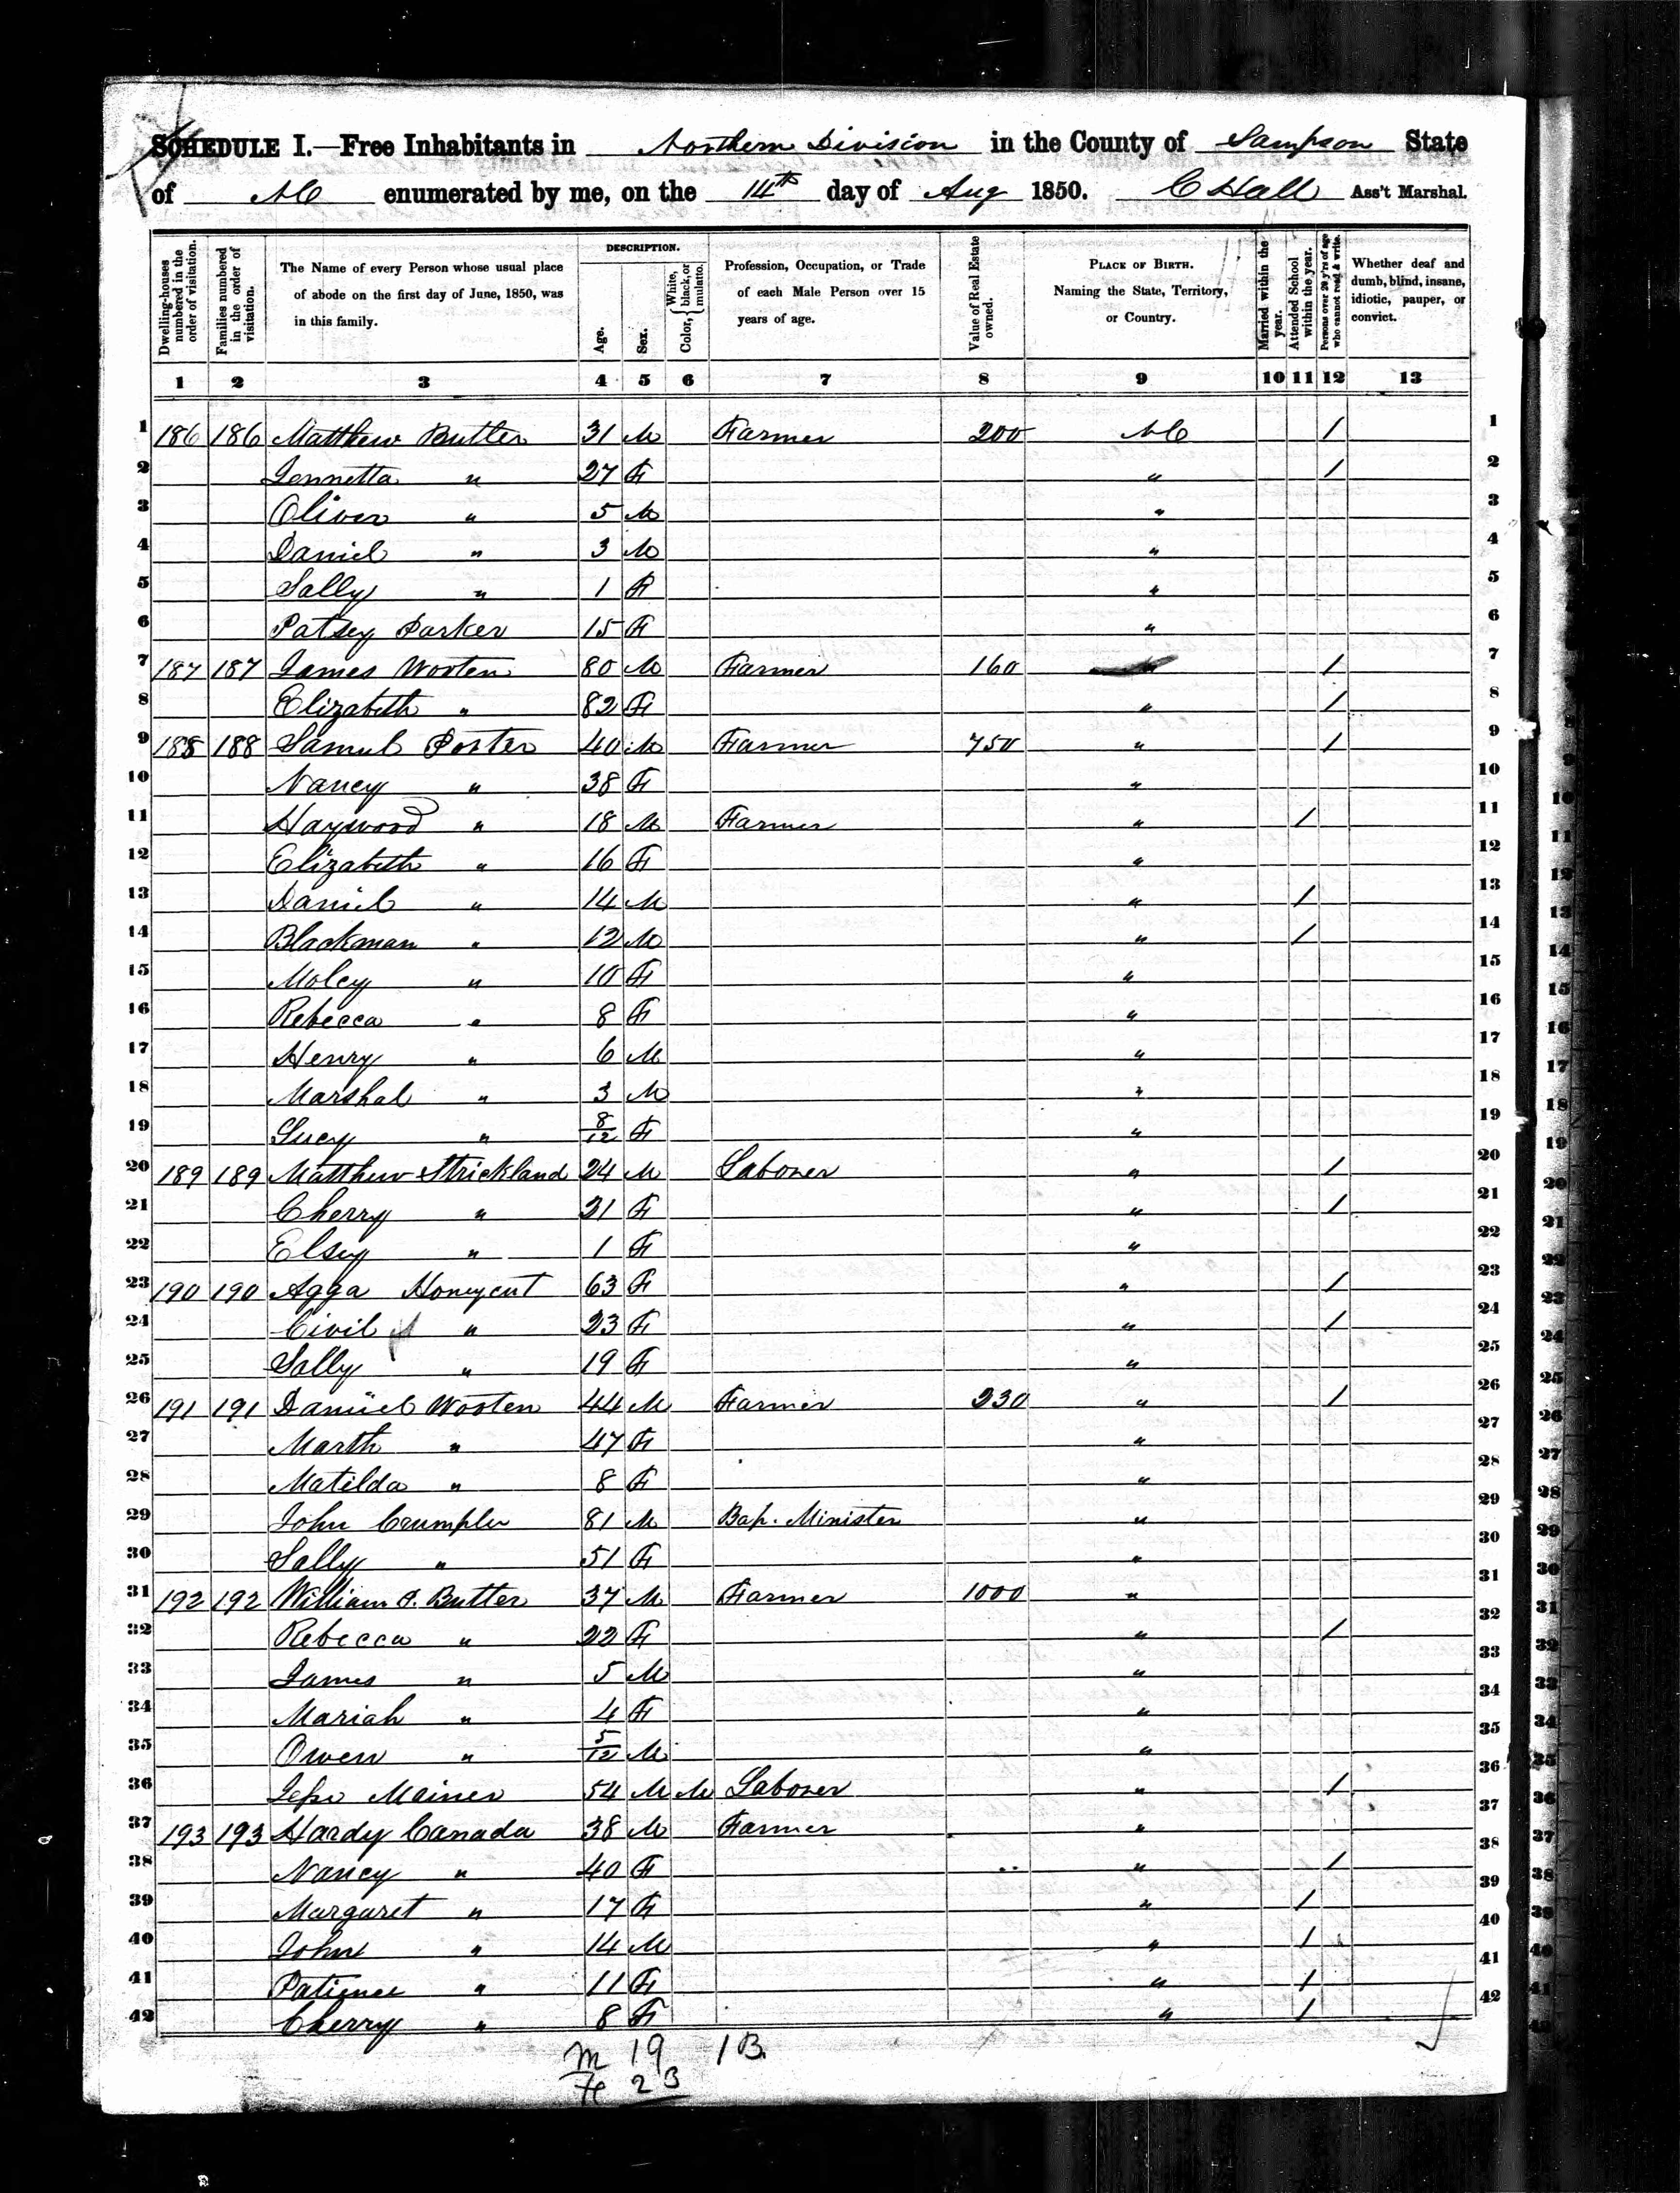 SCHEDULE I.—Free Inhabitants in Northern Division in the County of Sampson State
of NC enumerated by me, on the 14th day of Aug 1850. C Hall Ass't Marshal.
Dwelling-houses numbered in the order of visitation.
Families numbered in the order of visitation.
The Name of every Person whose usual place of abode on the first day of June, 1850, was in this family.
DESCRIPTION.
Age.
Sex.
Color, { White, black, or mulatto.
Profession, Occupation, or Trade of each Male Person over 15 years of age.
Value of Real Estate owned.
PLACE OF BIRTH. Naming the State, Territory, or Country.
Married within the year.
Attended School within the year.
Persons over 20 y'rs of age who cannot read & write.
Whether deaf and dumb, blind, insane, idiotic, pauper, or convict.
1 2 3 4 5 6 7 8 9 10 11 12 13
1 186 186 Matthew Butler 31 M Farmer 200 NC / 1
2 Jennetta " 27 F " / 2
3 Oliver " 5 M " 3
4 Daniel " 3 M " 4
5 Sally " 1 F " 5
6 Patsey Parker 15 F " 6
7 187 187 James Wooten 80 M Farmer 160 " / 7
8 Elizabeth " 82 F " / 8
9 188 188 Samuel Porter 40 M Farmer 750 " / 9
10 Nancy " 38 F " 10
11 Haywood " 18 M Farmer " / 11
12 Elizabeth " 16 F " 12
13 Daniel " 14 M " / 13
14 Blackman " 12 M " / 14
15 Moley " 10 F " 15
16 Rebecca " 8 F " 16
17 Henry " 6 M " 17
18 Marshal " 3 M " 18
19 Lucy " 8/12 F " 19
20 189 189 Matthew Strickland 24 M Laborer " / 20
21 Cherry " 21 F " / 21
22 Elsey " 1 F " 22
23 190 190 Agga Honeycut 63 F " / 23
24 Civil A " 23 F " / 24
25 Sally " 19 F " 25
26 191 191 Daniel Wooten 44 M Farmer 230 " / 26
27 Marth " 47 F " 27
28 Matilda " 8 F " 28
29 John Crumpler 81 M Bap. Minister " 29
30 Sally " 51 F " 30
31 192 192 William P. Butler 37 M Farmer 1000 " 31
32 Rebecca " 22 F " / 32
33 James " 5 M " 33
34 Mariah " 4 F " 34
35 Owen " 5/12 M " 35
36 Jesse Mainer 54 M M Laborer " / 36
37 193 193 Hardy Canada 38 M Farmer " 37
38 Nancy " 40 F " / 38
39 Margaret " 17 F " / 39
40 John " 14 M " / 40
41 Patience " 11 F " / 41
42 Cherry " 8 F " / 42
M 19 1 B.
Fe 23